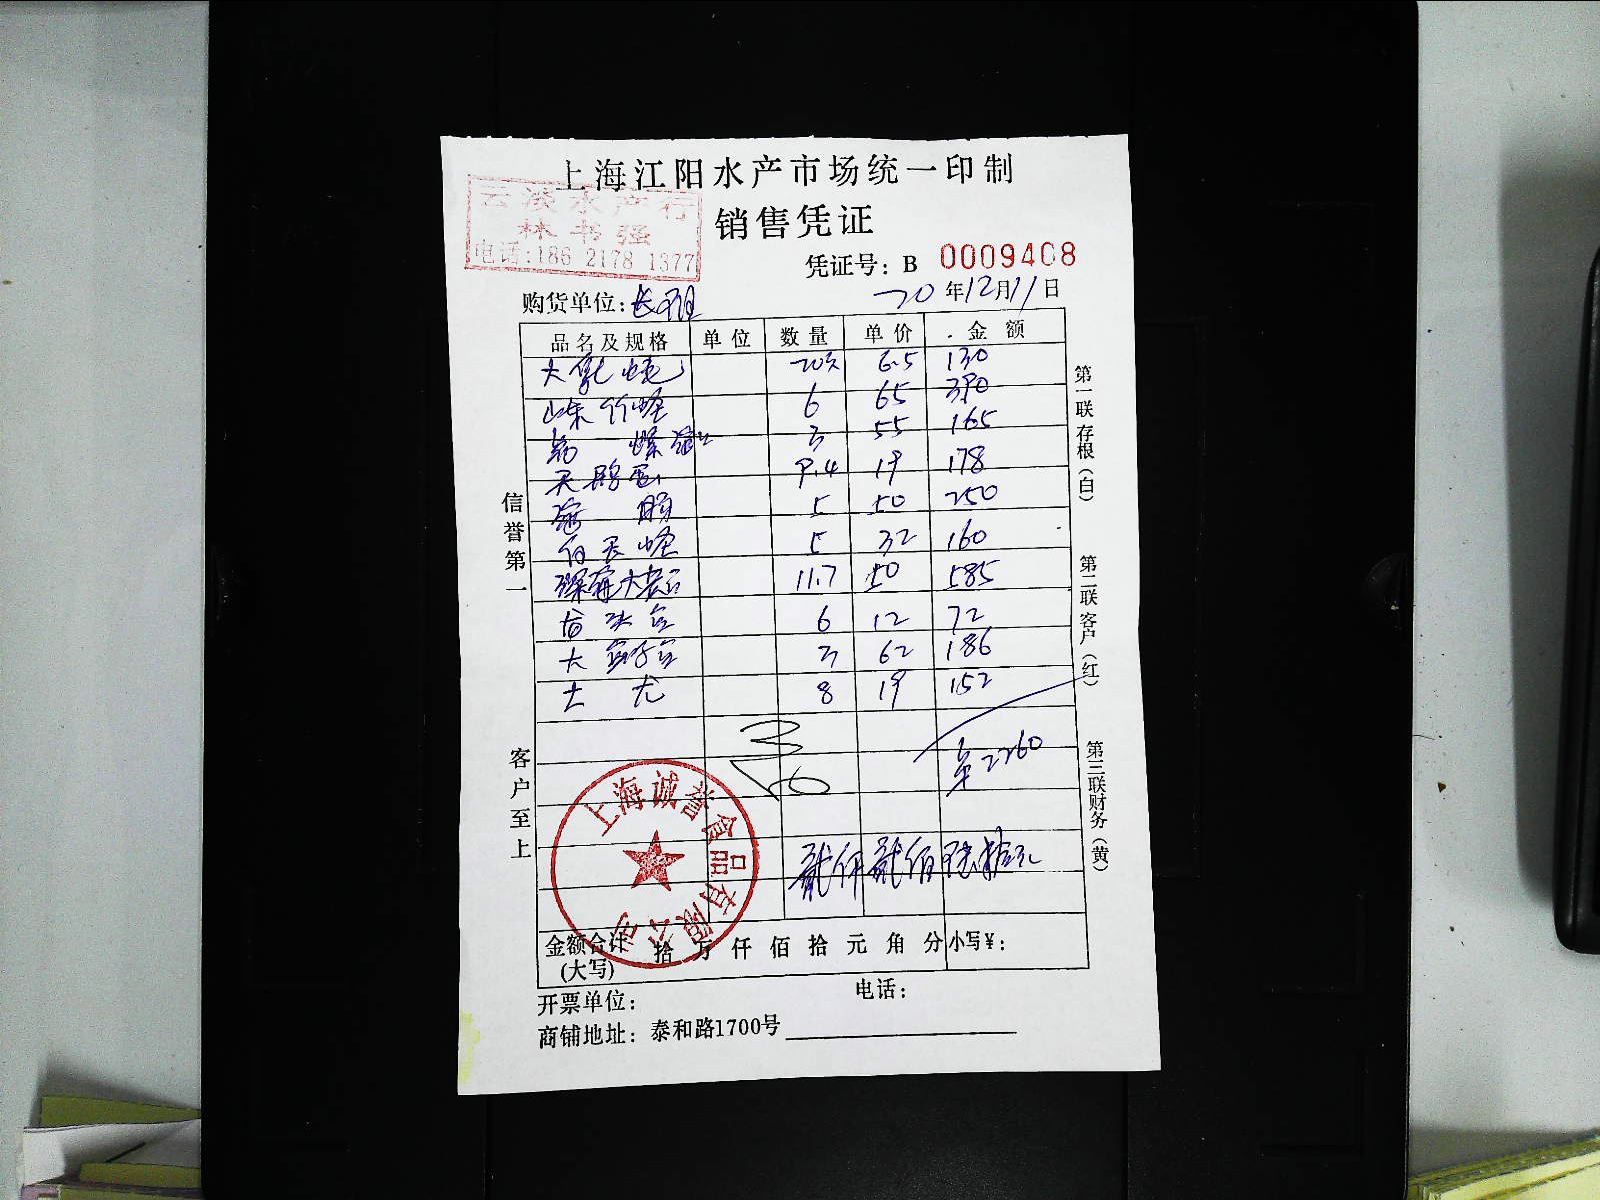 上海江阳水产市场统一印制
云淡水产行
林书强
电话:186 2178 1377
销售凭证
凭证号: B 0009408
购货单位:
20年12月11日
品名及规格 单位 数量 单价 金额
大 20 6.5 130
山东竹蛏 6 65 390
3 55 165
天鹅蛋 9.4 19 178
5 50 250
5 32 160
11.7 50 585
6 12 72
大 3 62 186
8 19 152
2260
贰仟贰佰陆拾元
金额合计 拾 万 仟 佰 拾 元 角 分 小写¥:
(大写)
开票单位: 电话:
商铺地址: 泰和路1700号
信誉第一
客户至上
第一联存根(白)
第二联客户(红)
第三联财务(黄)
上海诚誉食品有限公司